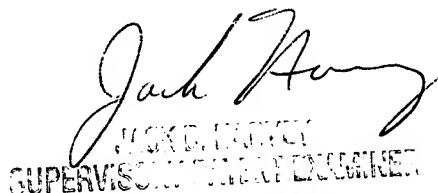 Jack Harvey
JACK B. HARVEY
SUPERVISORY PATENT EXAMINER